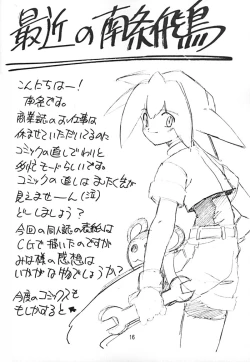 最近の南条飛鳥
こんにちはー!
南条です。
商業誌のお仕事は
休ませていただいてるのに
コミックの直しでわりと
多忙モードらしいです。
コミックの直しは まったく先が
見えませーん(泣)
どーしましょう?
今回の同人誌の表紙は
CGで描いたのですが
みな様の感想は
いかがな物でしょうか?
今度のコミックスも
もしかすると
16